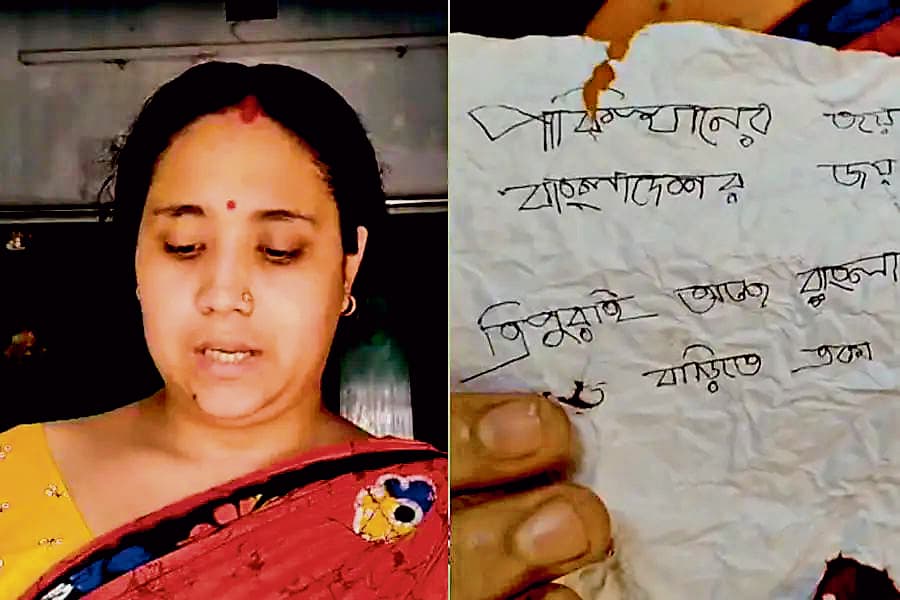 পাকিস্থানের জয়
বাংলাদেশের জয়
ত্রিপুরাই আজ বাংলা
বাড়িতে একা